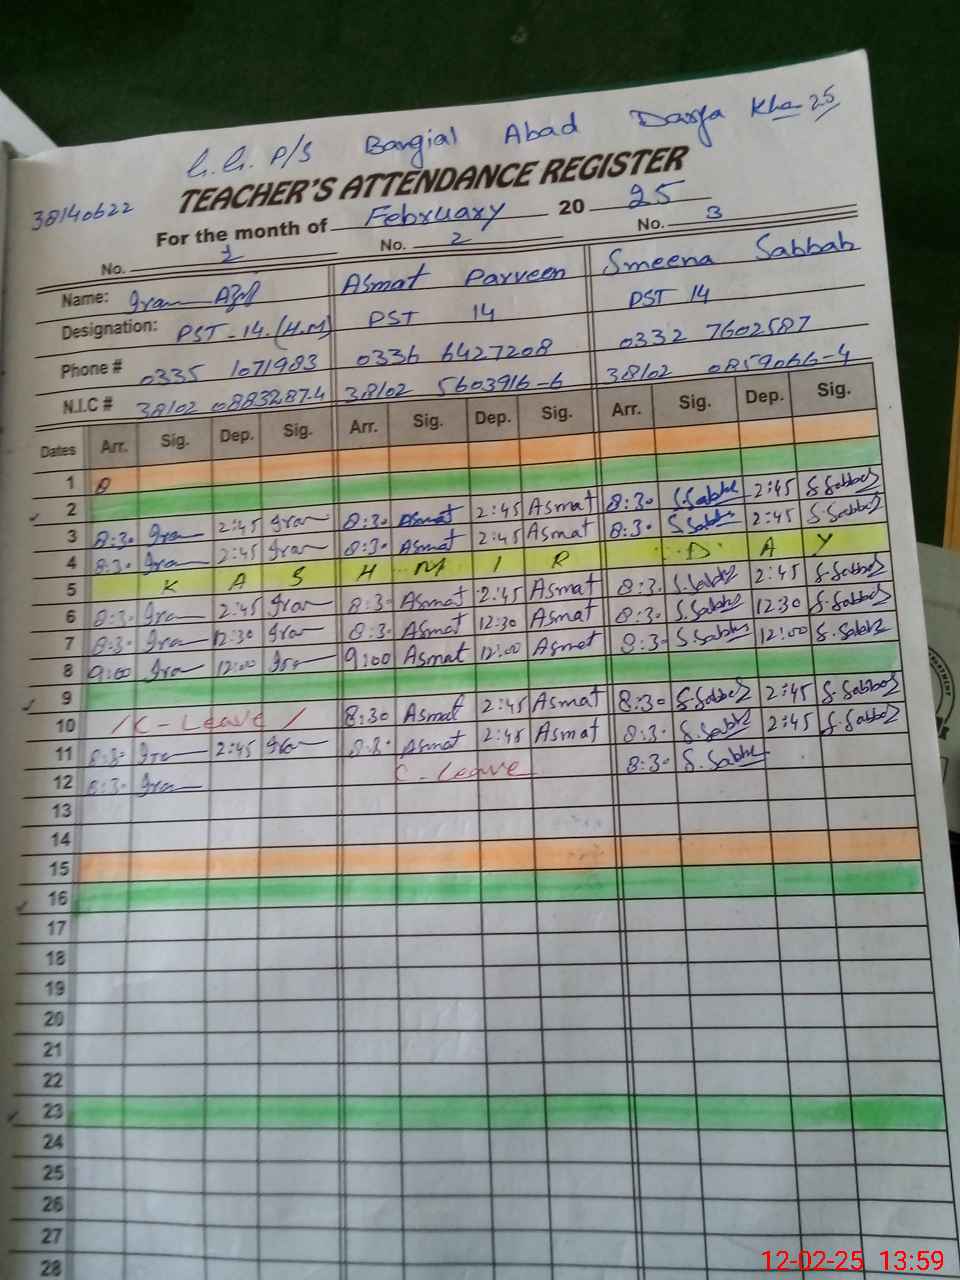 G.G. P/S Bangial Abad Darga Kha 25
TEACHER'S ATTENDANCE REGISTER
38140622
For the month of February 2025
No. 1 No. 2 No. 3
Name: Iram Asmat Parveen Smeena Sabbah
Designation: PST-14.(H.M) PST 14 PST 14
Phone # 0335 1071983 0336 6427208 0332 7602587
N.I.C # 38102 0883287-4 38102 5603916-6 38102 0859066-4
Dates Arr. Sig. Dep. Sig. Arr. Sig. Dep. Sig. Arr. Sig. Dep. Sig.
1
2
3 8:30 Iram 2:45 Iram 8:30 Asmat 2:45 Asmat 8:30 S.Sabbah 2:45 S.Sabbah
4 8:30 Iram 2:45 Iram 8:30 Asmat 2:45 Asmat 8:30 S.Sabbah 2:45 S.Sabbah
5 K A S H M I R D A Y
6 8:30 Iram 2:45 Iram 8:30 Asmat 2:45 Asmat 8:30 S.Sabbah 2:45 S.Sabbah
7 8:30 Iram 12:30 Iram 8:30 Asmat 12:30 Asmat 8:30 S.Sabbah 12:30 S.Sabbah
8 9:00 Iram 12:00 Iram 9:00 Asmat 12:00 Asmat 8:30 S.Sabbah 12:00 S.Sabbah
9
10 / C - Leave / 8:30 Asmat 2:45 Asmat 8:30 S.Sabbah 2:45 S.Sabbah
11 8:30 Iram 2:45 Iram 8:30 Asmat 2:45 Asmat 8:30 S.Sabbah 2:45 S.Sabbah
12 8:30 Iram C - Leave 8:30 S.Sabbah
13
14
15
16
17
18
19
20
21
22
23
24
25
26
27
28
12-02-25 13:59